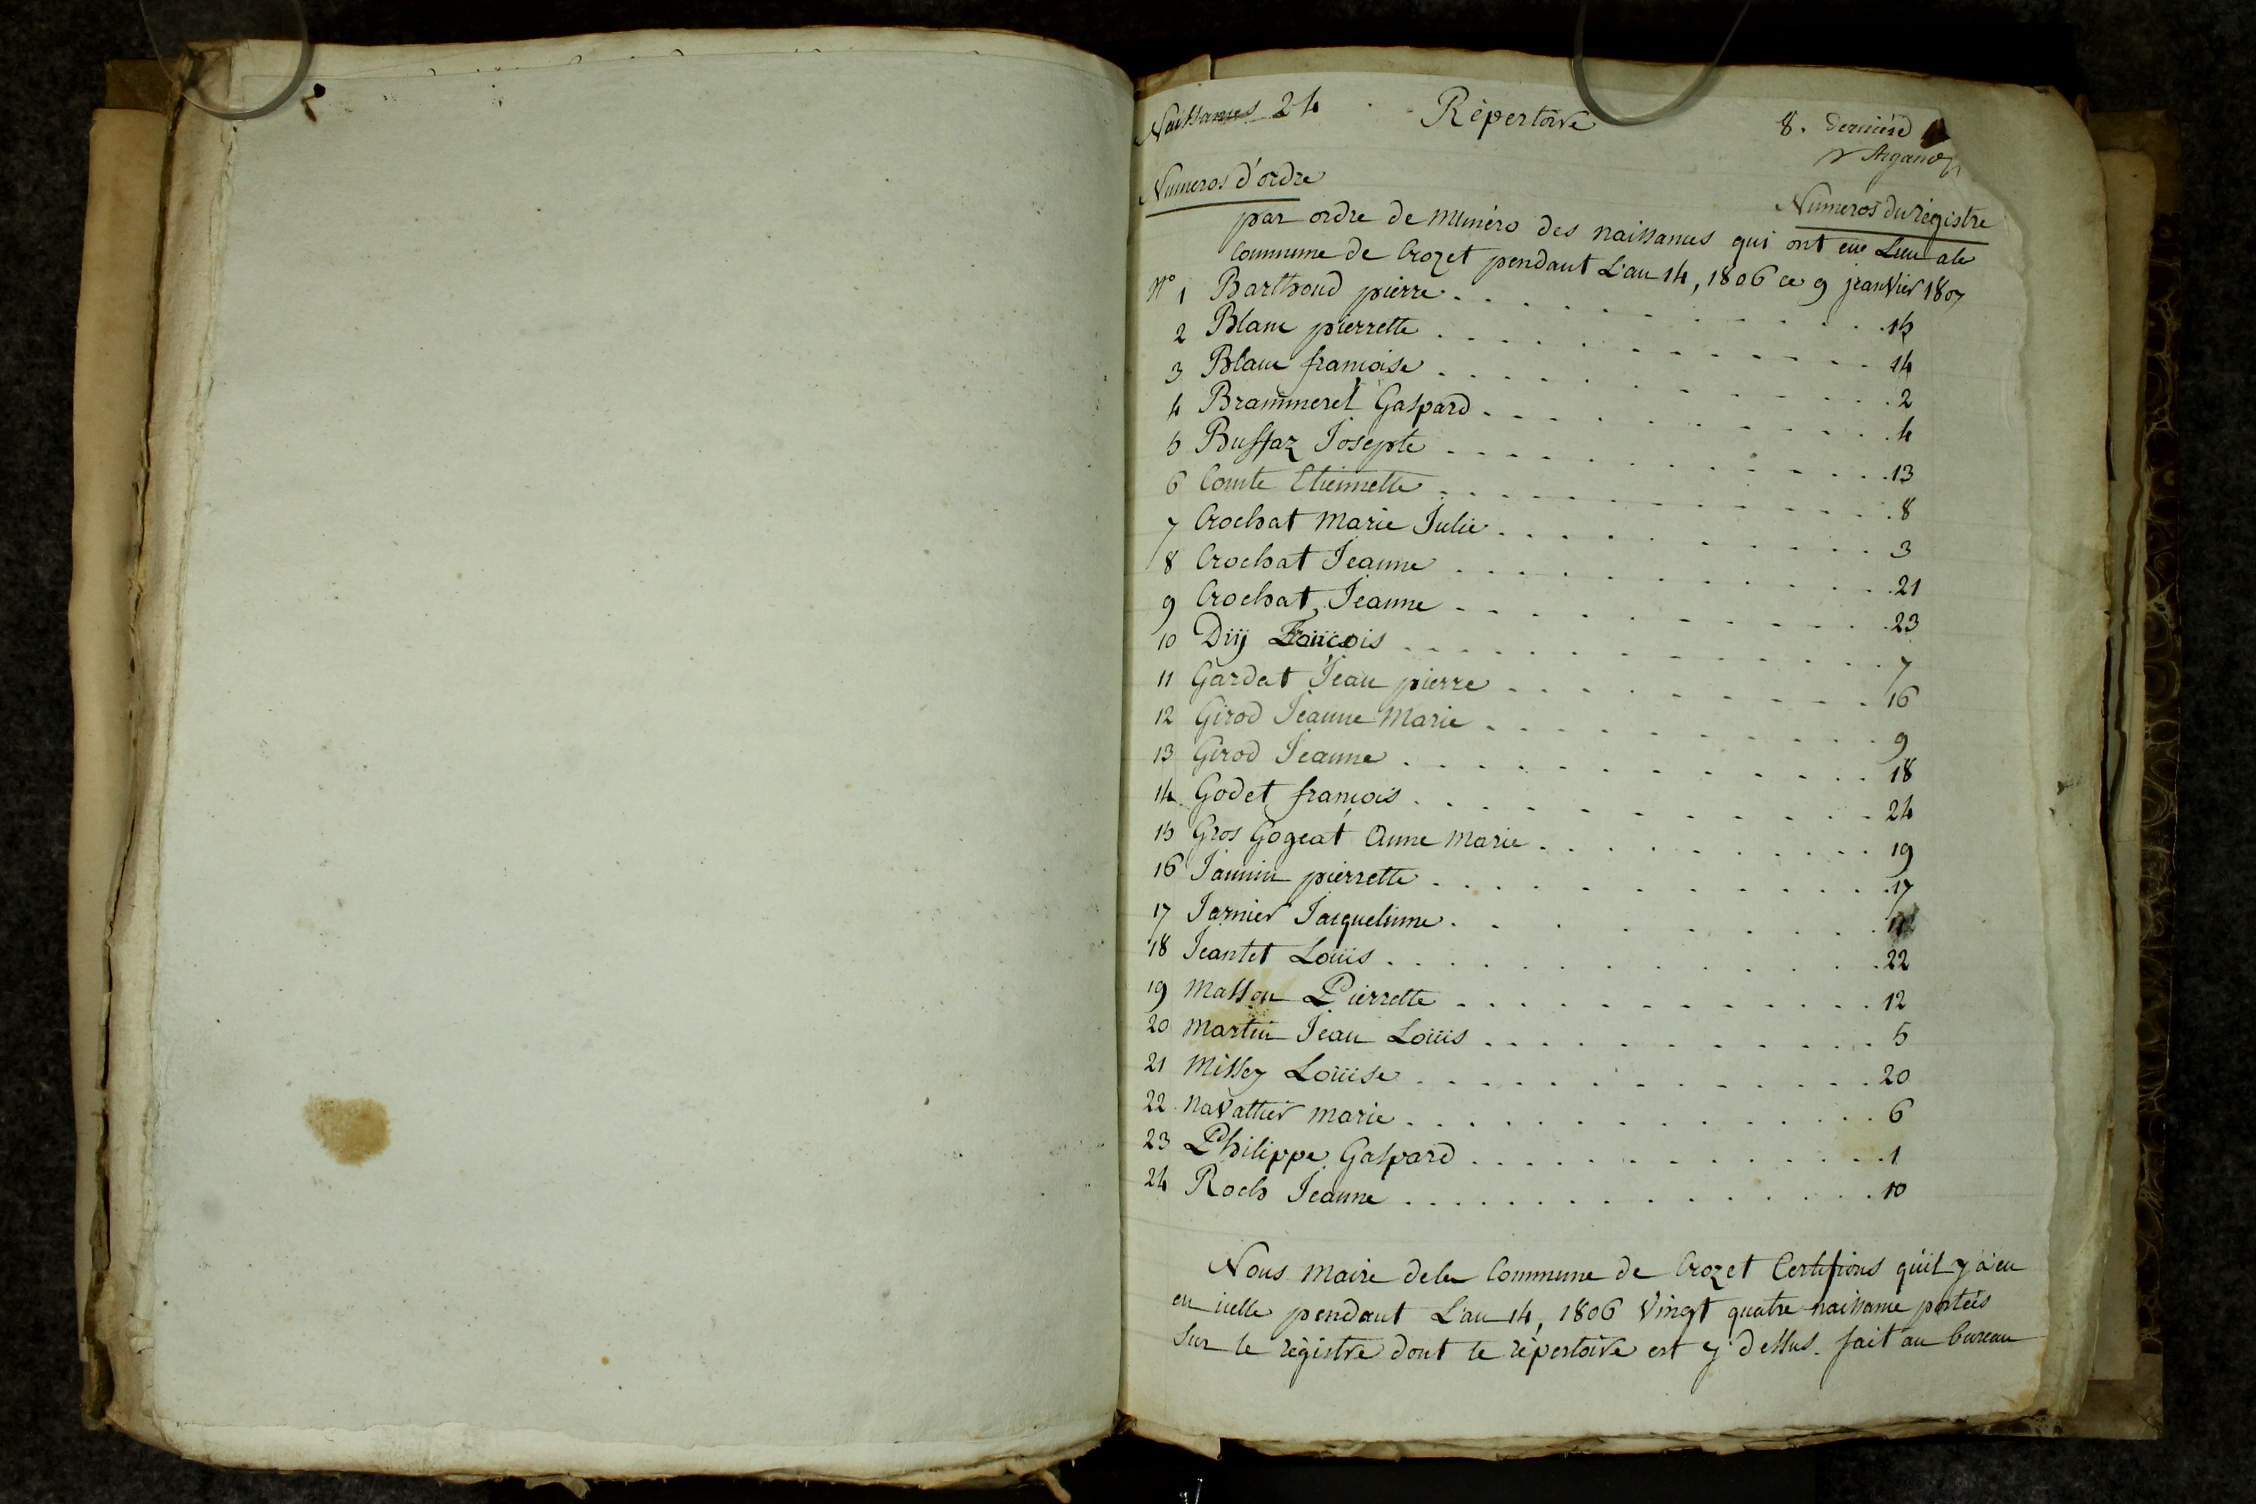 Naissances 24 Répertoire 8. derniere
Numeros d'ordre
Numeros du régistre
par ordre de numéro des naissances qui ont eue Lieu ala
Commune de Crozet pendant L'an 14, 1806 ce 9 janvier 1807
N° 1 Barthoud pierre 15
2 Blanc pierrette 14
3 Blanc francoise 2
4 Brammerel Gaspard 4
5 Buffaz Josepte 13
6 Comte Etiennette 8
7 Crochat Marie Julie 3
8 Crochat Jeanne 21
9 Crochat Jeanne 23
10 Diij François 7
11 Gardet Jean pierre 16
12 Girod Jeanne Marie 9
13 Girod Jeanne 18
14 Godet françois 24
15 Gros Gogeat Anne Marie 19
16 Jannin pierrette 17
17 Jarnier Jacquelinne 11
18 Jeantet Loüis 22
19 Masson Pierrette 12
20 Martin Jean Loüis 5
21 Missey Loüise 20
22 Navattier Marie 6
23 Philippe Gaspard 1
24 Roch Jeanne 10
Nous Maire dela Commune de Crozet Certifions quil y a eu
en icelle pendant L'an 14, 1806 Vingt quatre naissance portées
Sur le régistre dont le répertoire est y dessus. fait au bureau